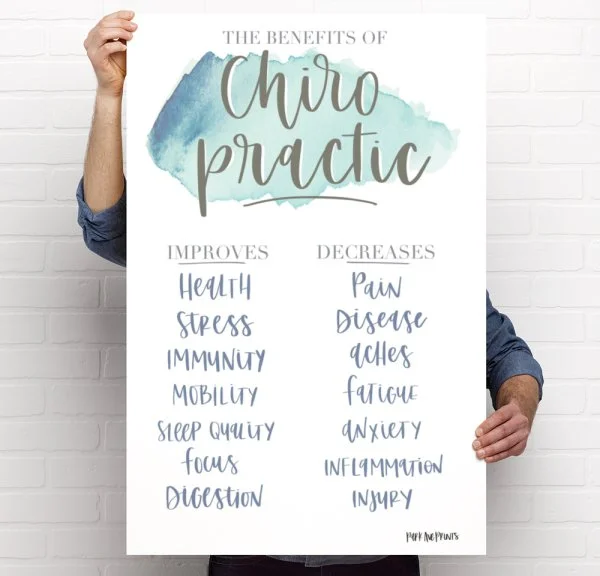 THE BENEFITS OF
Chiro
practic
IMPROVES
HEALTH
STRESS
IMMUNITY
MOBILITY
SLEEP QUALITY
focus
DIGESTION
DECREASES
PAIN
Disease
ACHES
fATIGUE
ANXIETY
INFLAMMATION
INJURY
PARK AVE PRINTS